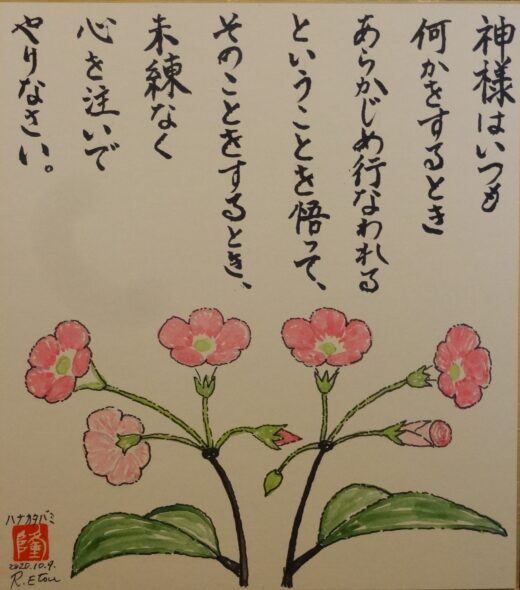 神様はいつも
何かをするとき
あらかじめ行なわれる
ということを悟って、
そのことをするとき、
未練なく
心を注いで
やりなさい。
ハナカタバミ
隆
2020.10.9.
R.Etou